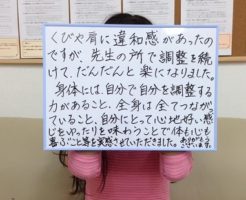 くびや肩に違和感があったの
ですが、先生の所で調整を続
けて、だんだんと楽になりました。
身体には、自分で自分を調整する
力があること、全身は全てつながっ
ていること、自分にとって心地好い感
じをゆったりを味わうことで体も心も
喜ぶこと等を実感させていただきました。